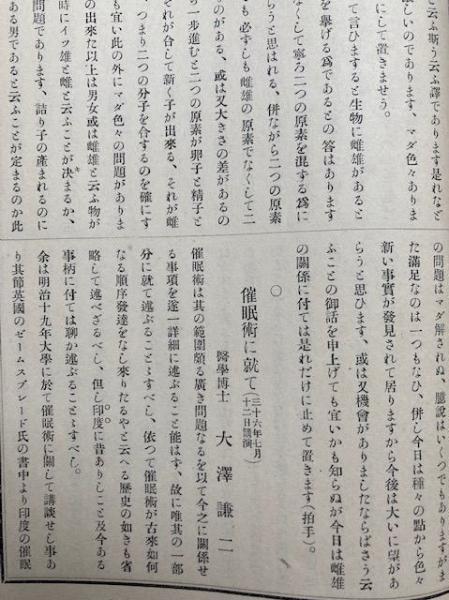 と云ふ斯う云ふ譯であります是れなど
欲しいのであります、マダ色々ありま
にして置きませう。
て言ひますると生物に雌雄があると
を擧げる爲であるとの答はあります
なくして寧ろ二つの原素を混する爲に
らうと思はれる、併ながら二つの原素
も必ずしも雌雄の原素でなくして二
のがある、或は又大きさの差があるの
一歩進むと二つの原素が卵子と精子と
それが合して新く子が出來る、それが雌
、つまり二つの分子を合するのを確にす
も宜い此の外にマダ色々の問題がありま
の出來た以上は男女或は雌雄と云ふ物が
時にイツ雄と雌と云ふことが決まるか、
問題であります、詰り子の產まれるのに
ある男であると云ふことが定まるのか此
の問題はマダ解されぬ、臆說はいくつでもありますがま
た滿足なのは一つもなひ、併し今日は種々の點から色々
新い事實が發見されて居りますから今後は大いに望があ
らうと思ひます、或は又機會がありましたならばさう云
ふことの御話を申上げても宜いかも知らぬが今日は雌雄
の關係に付ては是れだけに止めて置きます(拍手)。
○
催眠術に就て(三十六年七月十二日講演)
醫學博士 大澤謙二
催眠術は其の範圍頗る廣き問題なるを以て今之に關係せ
る事項を逐一詳細に述ぶること能はず、故に唯其の一部
分に就て述ぶることゝすべし、依つて催眠術が古來如何
なる順序發達をなし來りたるやと云へる歷史の如きも省
略して述べざるべし、但し印度に昔ありしこと及今ある
事柄に付ては聊か述ぶることゝすべし。
余は明治十九年大學に於て催眠術に關して講談せし事あ
り其節英國のゼームスブレード氏の書中より印度の催眠